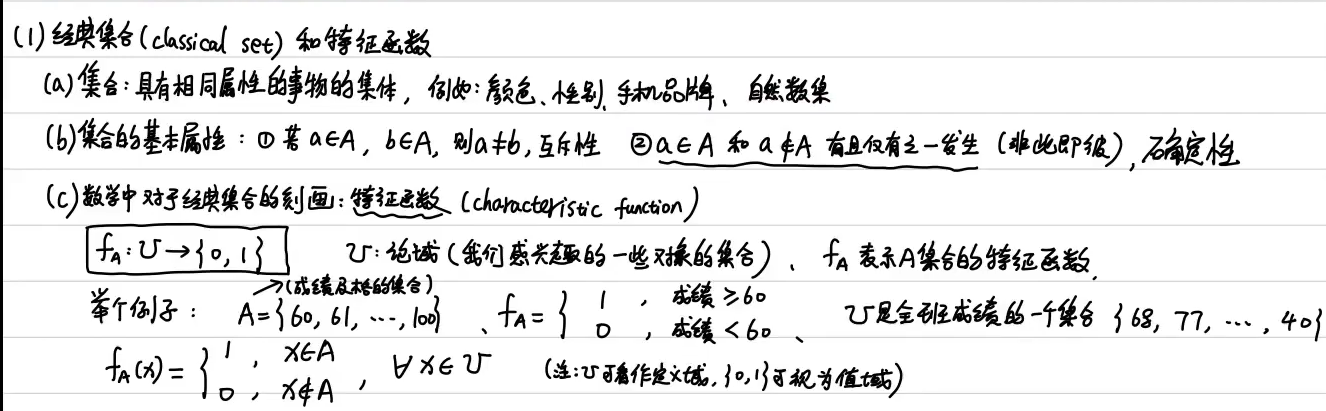 (1) 经典集合(classical set) 和特征函数
(a) 集合：具有相同属性的事物的集体，例如：颜色、性别、手机品牌、自然数集
(b) 集合的基本属性：① 若 a∈A, b∈A, 则a≠b, 互斥性 ② a∈A 和 a∉A 有且仅有之一发生 (非此即彼), 确定性
(c) 数学中对于经典集合的刻画：特征函数 (characteristic function)
f_A: U→{0,1} U: 论域 (我们感兴趣的一些对象的集合)、f_A 表示A集合的特征函数.
→(成绩及格的集合)
举个例子： A={60, 61, ⋯, 100}、f_A = { 1, 成绩≥60 0, 成绩<60、 U是全班成绩的一个集合 {68, 77, ⋯, 40}
f_A(x) = { 1, x∈A 0, x∉A, ∀x∈U (注：U可看作定义域, {0,1}可视为值域)